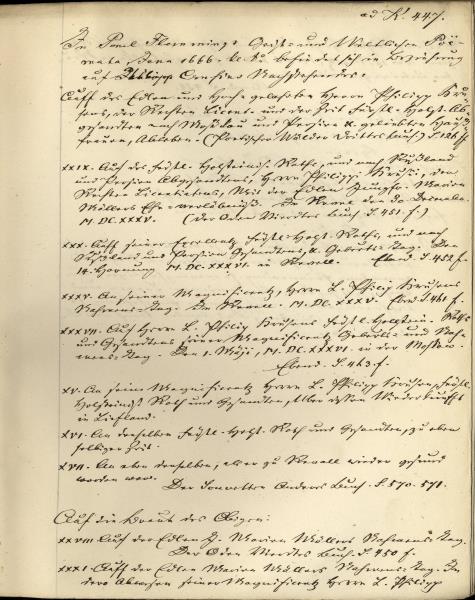 ad N. 447.
In Paul Flemmings Geist- und Weltlichen Poë-
mata, Jena 1666. befindet sich in Beziehung
auf Philipp Crusius Nachstehendes:
Auff des Edlen und Hoch-gelahrten Herrn Philipp Kru-
sens, der Rechten Licent. und der Zeit Fürstl. Holst. Ab-
gesandten nach Moskau und Persien geliebten Haus-
frauen, Ableben. (Poetischer Wälder Drittes Buch.) S. 126 ff
XXIX. Auf des Fürstl. Holsteinis. Raths, und nach Rußland
und Persien Abgesandtens, Herrn Philippi Krusii, der
Rechten Licentiatens, Mit der Edlen Jungfr. Marien
Müllers Ehe-verlöbnüß. In
M.DC.XXXV. (der Oden Vierdtes Buch. S. 451. f.)
XXX. Auff seiner Excellentz Fürstl. Holst. Raths, und nach
Rußland und Persien Gesandtens, Geburts-Tag. Den
14. Hornung M.DC.XXXVI. in Revall. Ebend. S. 452 f.
XXXV. An seiner Magnificentz, Herrn L. Philip Krusens
Nahmens-Tag. In Revall. M.DC.XXXV. Ebend. S. 461 f.
XXXVII. Auf Herrn L. Philip Krusens Fürstl. Holstein. Raths
und Gesandtens seiner Magnificentz Geburts- und Nah-
mens-Tag. Den 1. Maji, M.DC.XXXVI. in der Moskow.
Ebend. S. 463 f.
XV. An seine Magnificentz Herrn L. Philipp Krusen, Fürstl.
Holsteinis. Rath und Gesandten, über dessen Wiederkunfft
in Liefland.
XVI. An denselben Fürstl. Holst. Rath und Gesandten, zu eben
selbiger Zeit.
XVII. An eben denselben, als er zu Revall wieder gesund
worden war.
Der Sonnetten Anderes Buch. S. 570. 571.
Auf die Braut des Obigen:
XXVIII Auf der Edlen J. Marien Müllers Nahmens Tag.
Der Oden Vierdtes Buch. S. 450 f.
XXXI. Auff der Edlen Marien Müllers Nahmens-Tag. In
dero Abwesen seiner Magnificentz Herrn L. Philipp